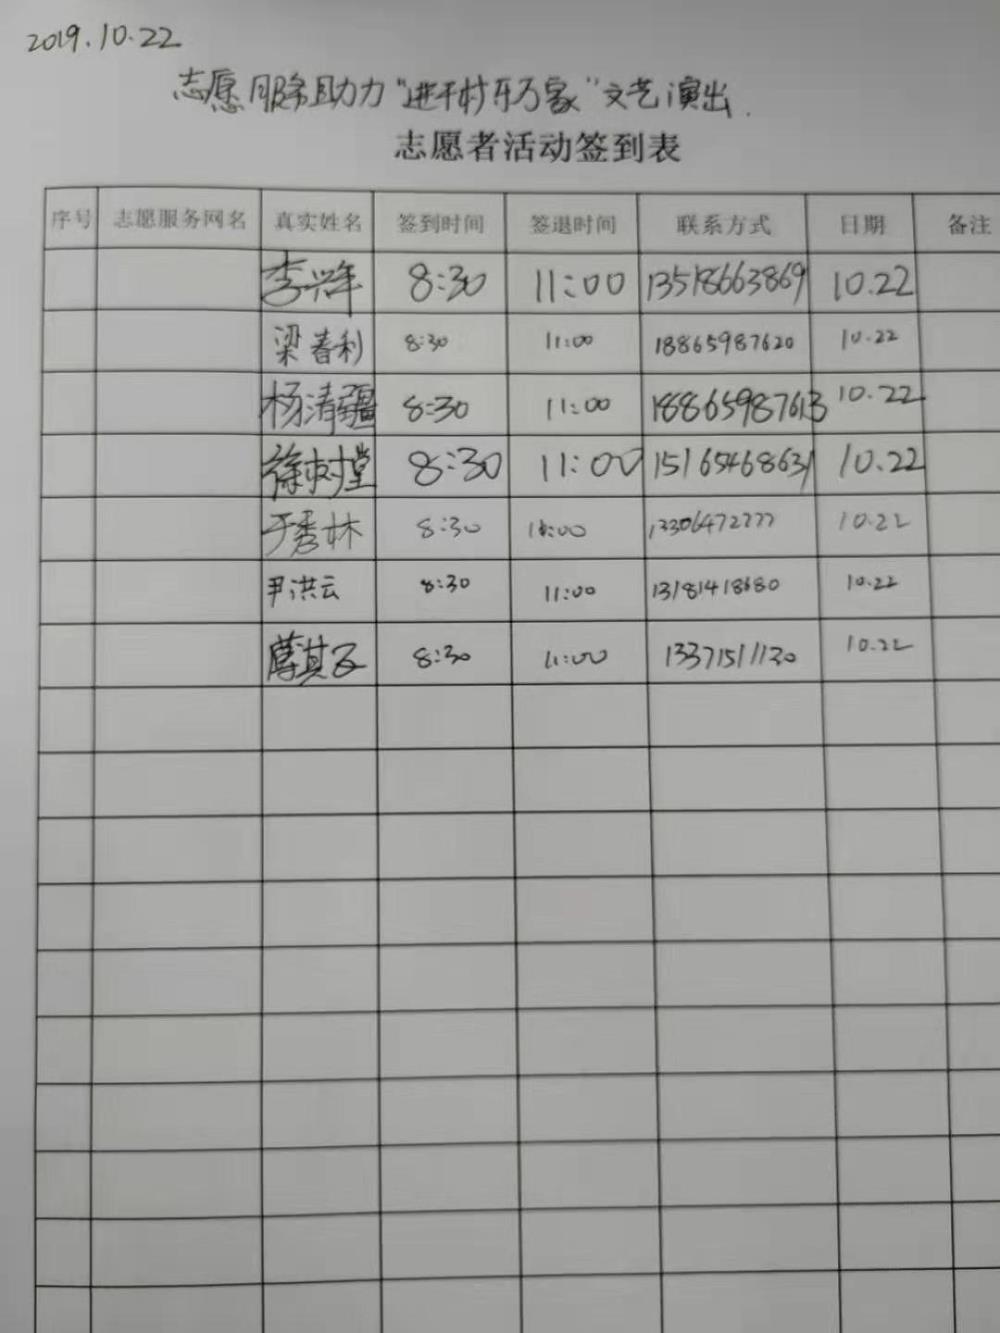 2019.10.22
志愿服务助力"进千村乐万家"文艺演出.
志愿者活动签到表
序号 志愿服务网名 真实姓名 签到时间 签退时间 联系方式 日期 备注
李兴华 8:30 11:00 13518663869 10.22
梁春利 8:30 11:00 18865987620 10.22
杨清疆 8:30 11:00 18865987613 10.22
徐树堂 8:30 11:00 15165468631 10.22
于秀林 8:30 11:00 13306472777 10.22
尹洪云 8:30 11:00 13181418680 10.22
其 8:30 11:00 13371511130 10.22